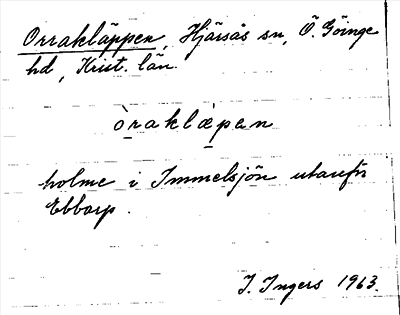 Orrakläppen, Hjärsås sn, Ö. Göinge
hd, Krist. län.
òraklæpen
holme i Immelsjön utanför
Ebbarp.
I. Ingers 1963.